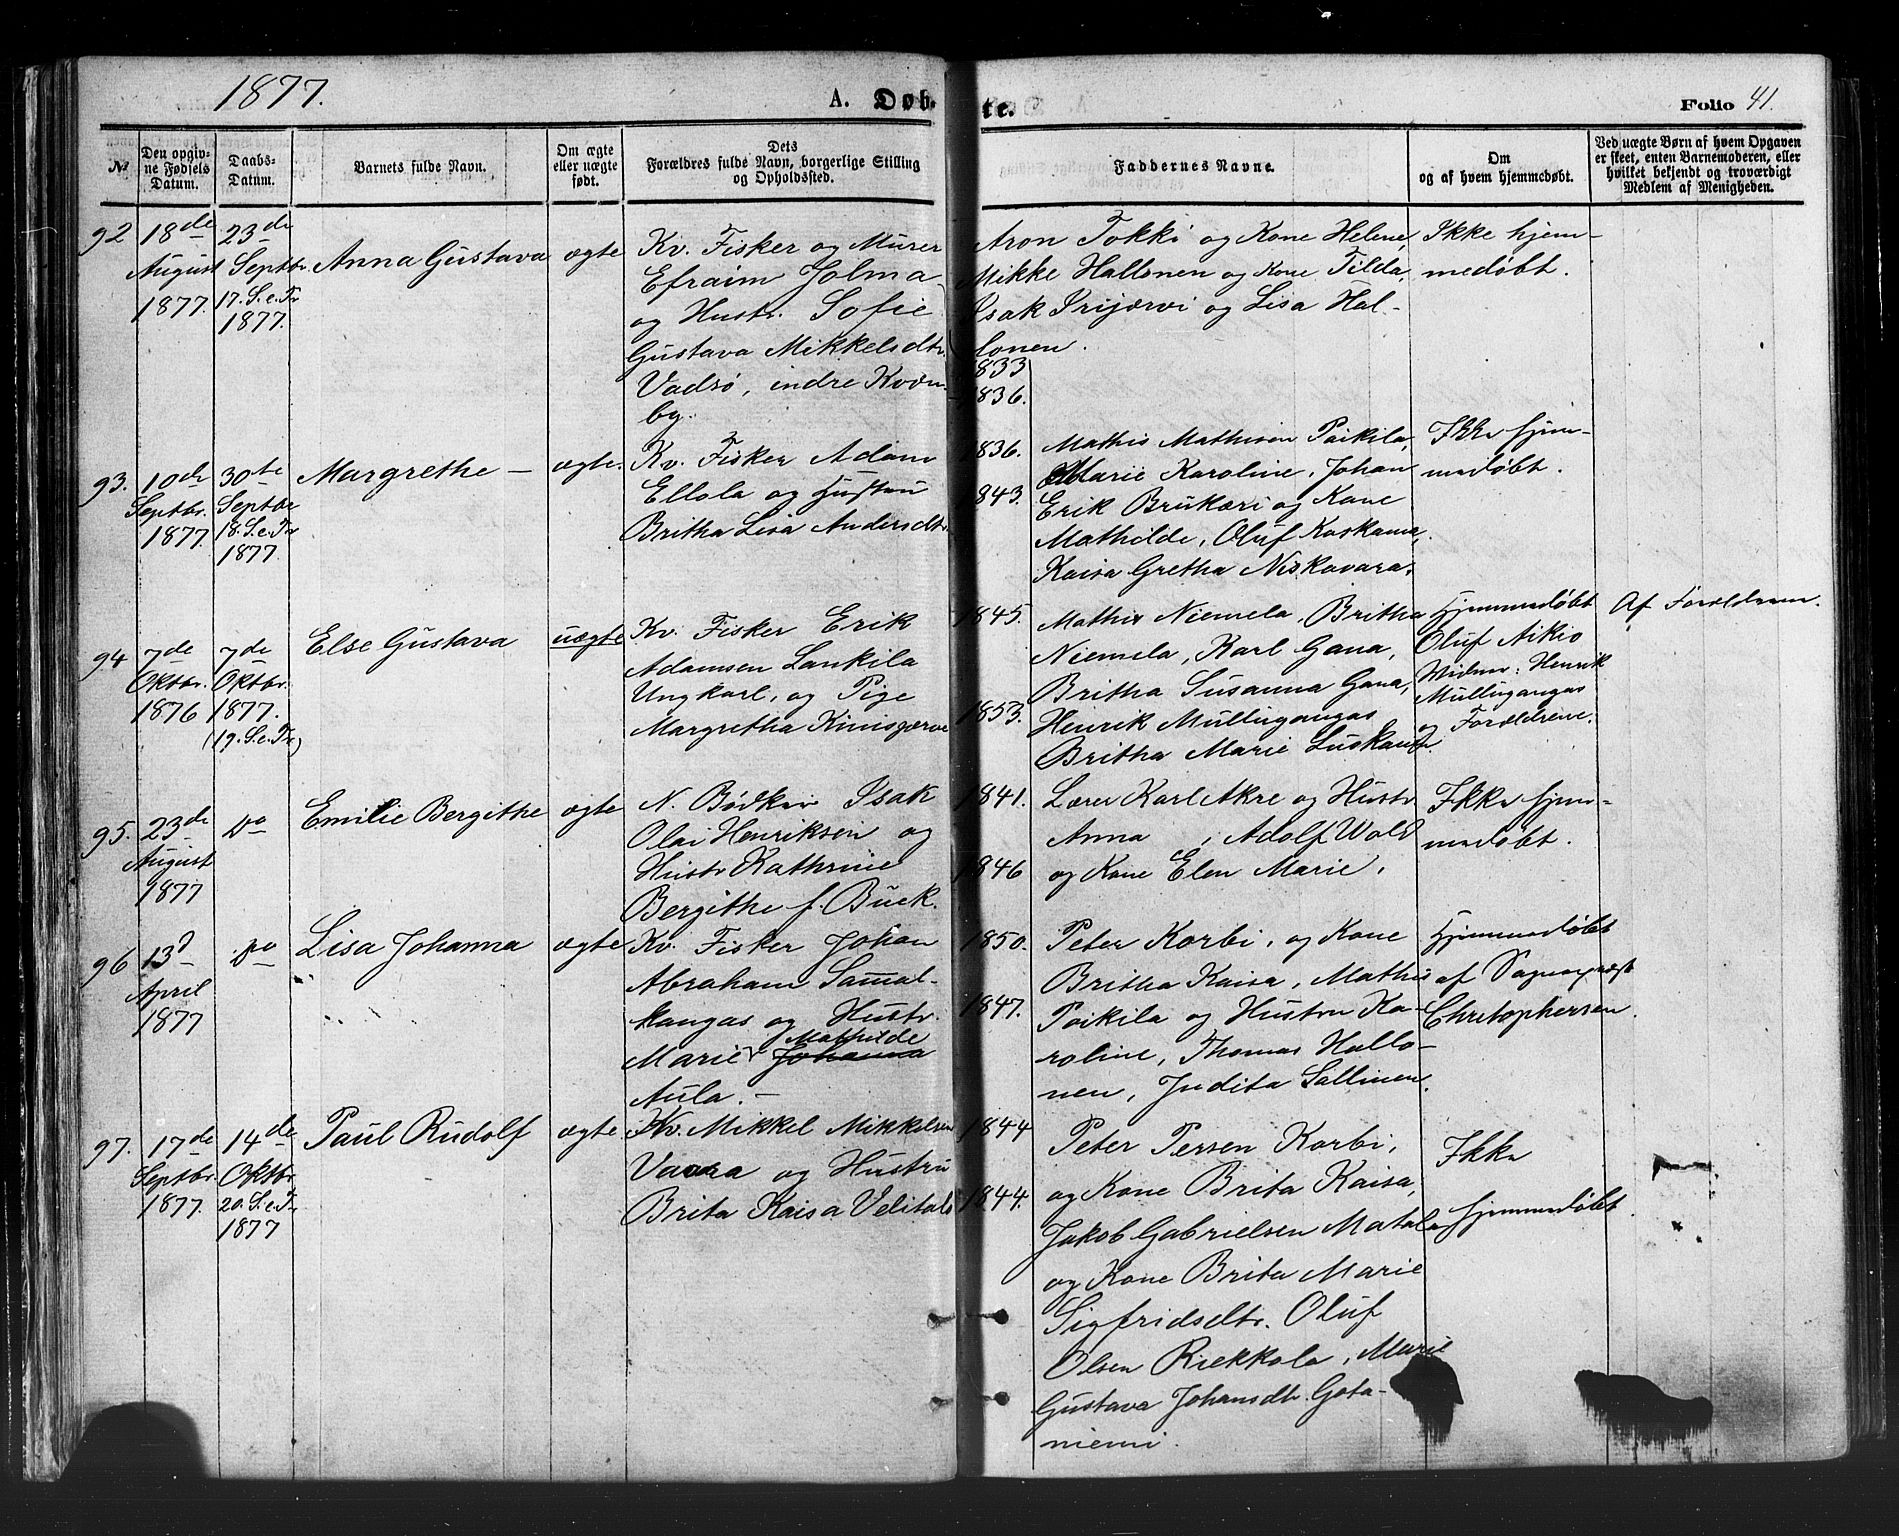 1877.
A. Døb-
te.
Folio 41.
№
Den opgiv-
ne Fødsels
Datum.
Daabs-
Datum.
Barnets fulde Navn.
Om ægte
eller uægte
født.
Dets
Forældres fulde Navn, borgerlige Stilling
og Opholdssted.
Faddernes Navne.
Om
og af hvem hjemmedøbt.
Ved uægte Børn af hvem Opgaven
er skeet, enten Barnemoderen, eller
hvilket bekjendt og troværdigt
Medlem af Menigheden.
92
18de
August
1877.
23de
Septbr.
17. S. e. Tr
1877.
Anna Gustava
ægte
Kv. Fisker og Murer
Efraim Jolma
og Hustr. Sofie
Gustava Mikkelsdtr.
Vadsø, indre Kvæn-
by.
1833
1836.
Aron Tokki og Kone Helene,
Mikke Hallonen og Kone Tilda,
Isak Irijærvi og Lisa Hal-
lonen.
Ikke hjem-
medøbt.
93.
10de
Septbr.
1877.
30te
Septbr
18. S. e. Tr
1877.
Margrethe —
ægte.
Kv. Fisker Adam
Ellola og Hustru
Britha Lisa Andersdtr.
1836.
1843.
Mathis Mathisen Paikila,
Marie Karoline, Johan
Erik Brukæri og Kone
Mathilde, Oluf Kaskama,
Kaisa Gretha Niskavara.
Ikke hjem-
medøbt.
94
7de
Oktbr.
1876
7de
Oktbr.
1877.
(19. S. e. Tr)
Else Gustava
uægte
Kv. Fisker Erik
Adamsen Lankila
Ungkarl, og Pige
Margretha Kinisjærvi
1845.
1853.
Mathis Niemela, Britha
Niemela, Karl Gana,
Britha Susanna Gana,
Henrik Mullugangas
Britha Marie
Hjemmedøbt
Oluf Aikio
Widner: Henrik
Mullugangas
og Forældrene.
Af Forældrene.
95.
23de
August
1877
do
Emilie Bergithe
ægte
N. Bødker Isak
Olai Henriksen og
Hustr Kathrine
Bergithe f. Buck.
1841.
1846
Lærer Karl Akre og Hustr
Anna , Adolf Wold
og Kone Elen Marie.
Ikke hjem-
medøbt.
96
13d
April
1877
do
Lisa Johanna
ægte
Kv. Fisker Johan
Abraham Samal-
kangas og Hustr.
Mathilde
Marie Johanna
Aula. —
1850.
1847.
Peter Korbi, og Kone
Britha Kaisa, Mathis
Paikila og Hustru Ka-
roline, Thomas Hallo-
nen, Judita Sallinen.
Hjemmedøbt
af Sogneprest
Christophersen.
97.
17de
Septbr.
1877.
14de
Oktbr
20. S. e. Tr.
1877
Paul Rudolf
ægte
Kv. Mikkel Mikkelsen
Vaara og Hustru
Brita Kaisa Velitalo
1844
1844.
Peter Persen Korbi,
og Kone Brita Kaisa,
Jakob Gabrielsen Matala
og Kone Brita Marie
Sigfridsdtr. Oluf
Olsen Riekkola, Marie
Gustava Johansdtr. Gota-
niemi.
Ikke
hjemmedøbt.